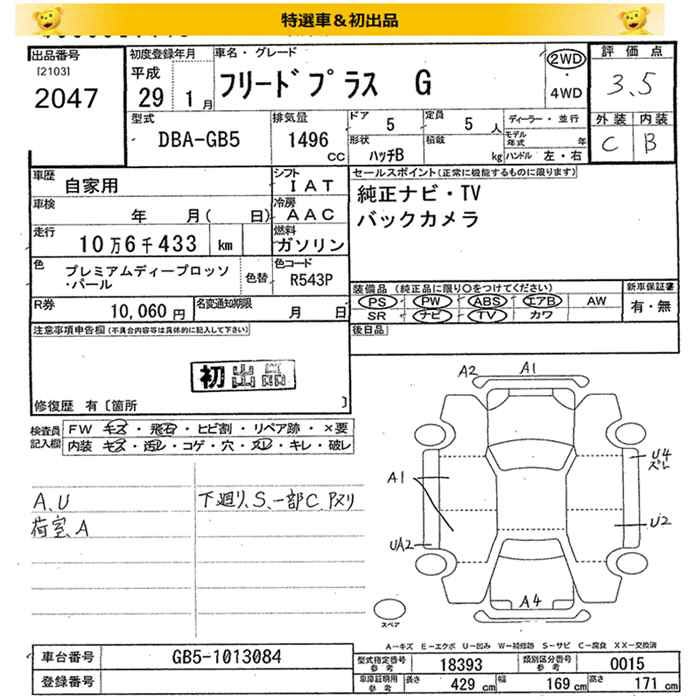 特選車＆初出品
出品番号 初度登録年月 車名・グレード 評価点
[2103] 平成
2047 29 1月 フリードプラス G 2WD・4WD 3.5
型式 排気量 ドア 5 定員 5人 ディーラー・並行 外装 内装
DBA-GB5 1496cc 形状 ハッチB 積載 kg モデル年式 年 C B
ハンドル 左・右
車歴 自家用 シフト IAT セールスポイント(正常に機能するものに限ります)
車検 年 月( 日) 冷房 AAC 純正ナビ・TV
走行 10万6千433 km 燃料 ガソリン バックカメラ
色 プレミアムディープロッソ・パール 色替 色コード R543P
装備品 (純正品に限り○をつけてください) 新車保証書
PS PW ABS エアB AW 有・無
R券 10,060円 名変通知期限 月 日 SR ナビ TV カワ
注意事項申告欄(不具合内容等は具体的に記入して下さい) 後日品
初出品
修復歴 有〔箇所 〕
検査員記入欄 FW キズ・飛石・ヒビ割・リペア跡・×要
内装 キズ・汚レ・コゲ・穴・ヌレ・キレ・破レ
A、U 下廻リ、S、一部C アヌリ
荷室、A
A2 A1
U4
ズレ
A1
U2
UA2
A4
スペア
A－キズ E－エクボ U－凹み W－補修跡 S－サビ C－腐食 XX－交換済
車台番号 GB5-1013084 型式指定番号 参考 18393 類別区分番号 参考 0015
登録番号 車庫証明用 参考 長さ 429 cm 幅 169 cm 高さ 171 cm